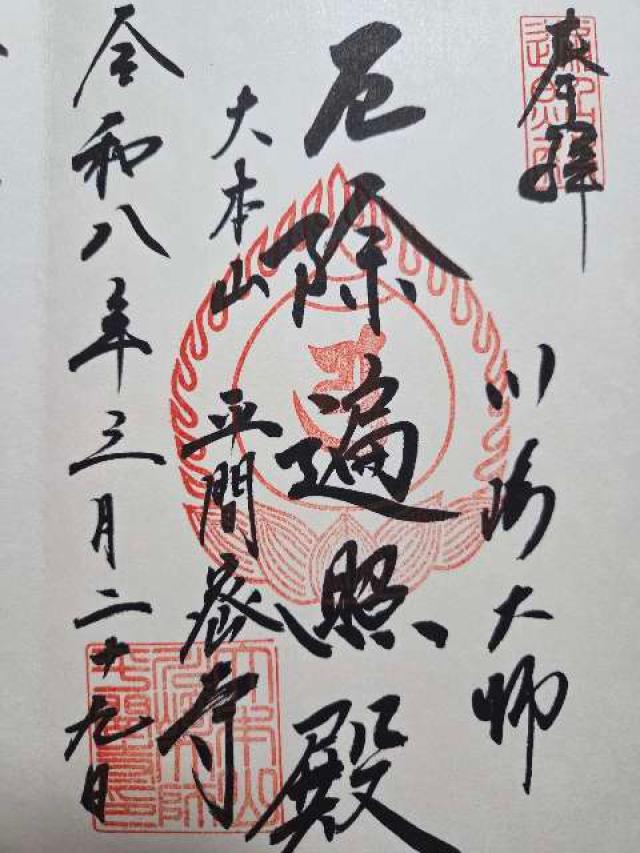 奉拝
川崎大師
厄除遍照殿
大本山
平間寺
令和八年三月二十九日